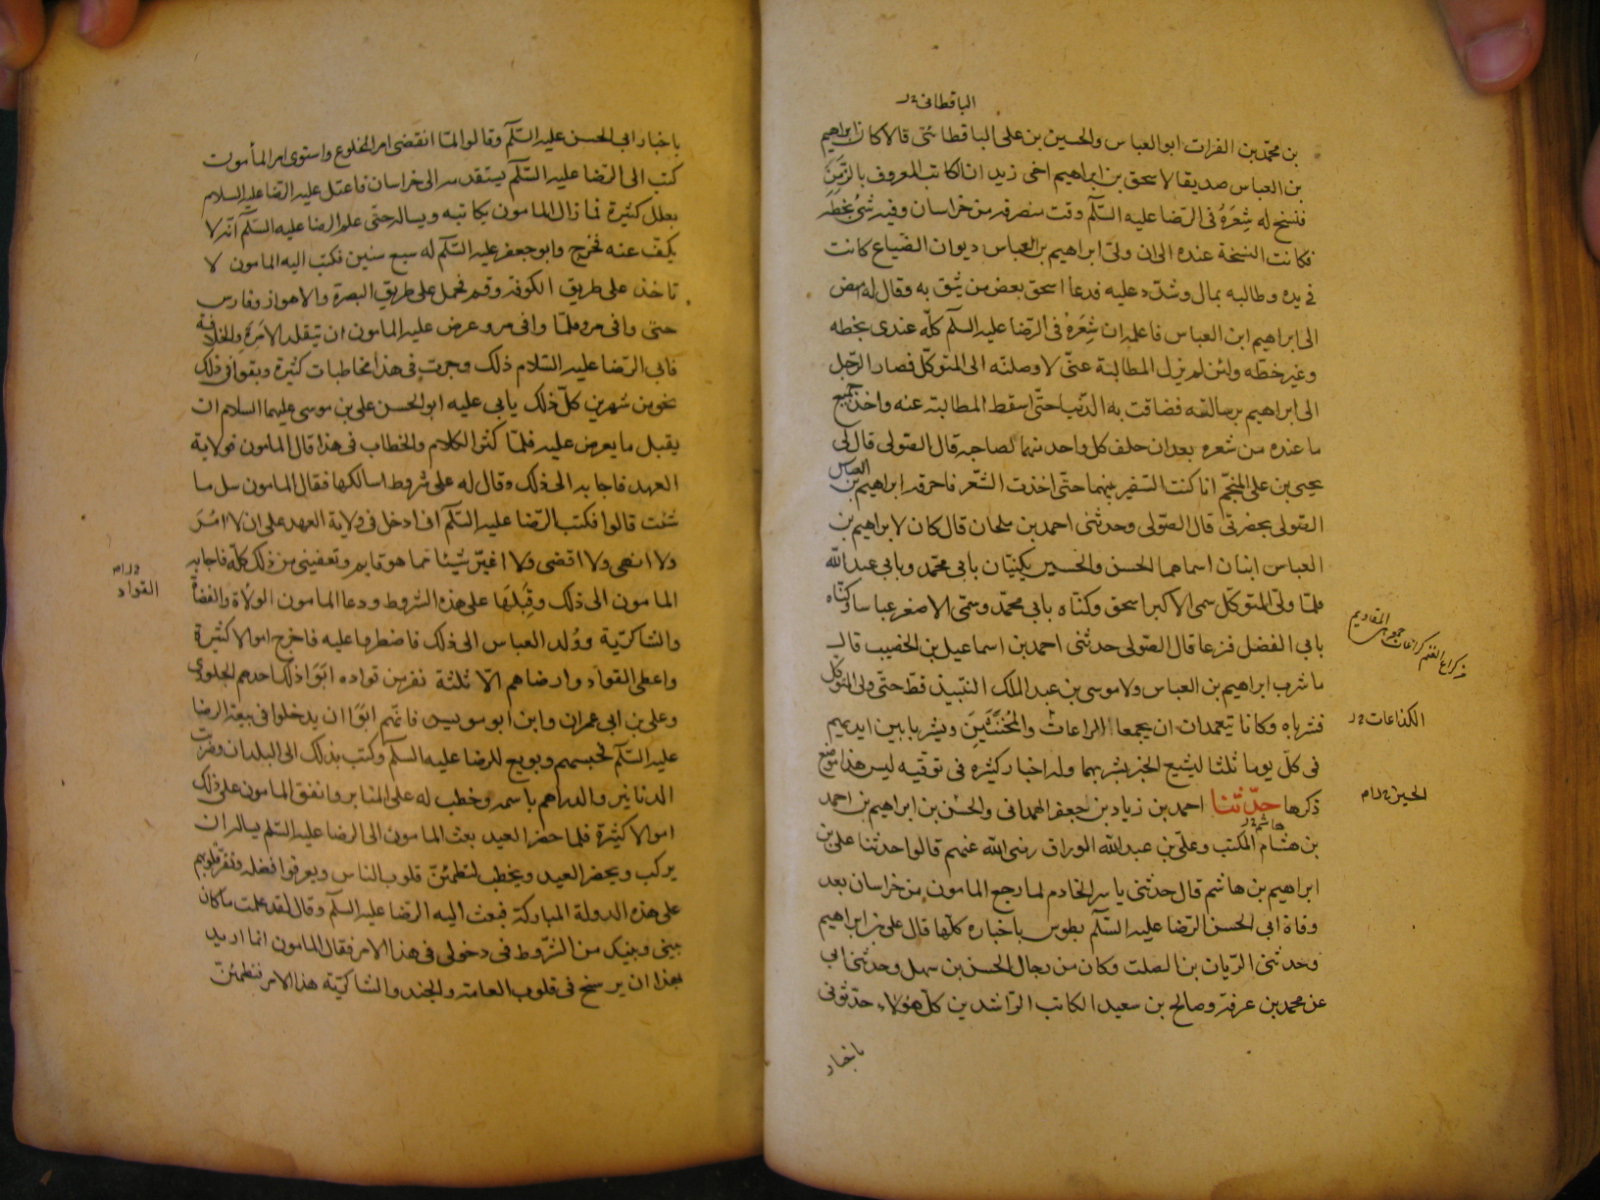 الباقطانى
بن محمد بن الفرات ابو العباس والحسين بن على الباقطائى قالا كان ابراهيم
بن العباس صديقا لاسحق بن ابراهيم اخى زيدان الكاتب المعروف بالزمن
فنسخ له شعره فى الرضا عليه السلم وقت منصرفه من خراسان وفيه شئ بخطه
فكانت النسخة عنده الى ان ولى ابراهيم بن العباس ديوان الضياع كانت
فى يده وطالبه بمال وشدد عليه فدعا اسحق بعض من يثق به وقال له امض
الى ابراهيم ابن العباس فاعلمه ان شعره فى الرضا عليه السلم كله عندى بخطه
وغير خطه ولئن لم يزل المطالبة عنى لاوصلنه الى المتوكل فصار الرجل
الى ابراهيم برسالته فضاقت به الدنيا حتى اسقط المطالبة عنه واخذ جميع
ما عنده من شعره بعد ان حلف كل واحد منهما لصاحبه قال الصولى قال لى
يحيى بن على المنجم انا كنت السفير بينهما حتى اخذت الشعر فاحرقه ابراهيم بن العباس
الصولى بحضرتى قال الصولى وحدثنى احمد بن ملحان قال كان لابراهيم بن
العباس ابنان اسماهما الحسن والحسين يكنيان بابى محمد وبابى عبد الله
فلما ولى المتوكل سمى الاكبر اسحق وكناه بابى محمد وسمى الاصغر عباسا وكناه
بابى الفضل فزعا قال الصولى حدثنى احمد بن اسماعيل بن الخصيب قال
ما شرب ابراهيم بن العباس ولا موسى بن عبد الملك النبيذ قط حتى ولى المتوكل
فشرباه وكانا يتعمدان ان يجمعا الراعات والمخنثين ويشربا بين ايديهم
فى كل يوم ثلثا ليشيع الخبر بشربهما وله اخبار كثيرة فى توقيه ليس هذا موضع
ذكرها حدثنا احمد بن زياد بن جعفر الهمدانى والحسن بن ابراهيم بن احمد
بن هشام المكتب وعلى بن عبد الله الوراق رضى الله عنهم قالوا حدثنا على بن
ابراهيم بن هاشم قال حدثنى ياسر الخادم لما رجع المامون من خراسان بعد
وفاة ابى الحسن الرضا عليه السلم بطوس باخباره كلها قال على بن ابراهيم
وحدثنى الريان بن الصلت وكان من رجال الحسن بن سهل وحدثنى ابى
عن محمد بن عرفة وصالح بن سعيد الكاتب الراشدين كل هؤلاء حدثونى
باخبار
الكناعات
الحسين
هاشم
باخبار ابى الحسن عليه السلم وقالوا لما انقضى امر المخلوع واستوى امر المأمون
كتب الى الرضا عليه السلم يستقدمه الى خراسان فاعتل عليه الرضا عليه السلام
بعلل كثيرة فما زال المامون يكاتبه ويساله حتى علم الرضا عليه السلم انه لا
يكف عنه فخرج وابو جعفر عليه السلم له سبع سنين فكتب اليه المامون لا
تاخذ على طريق الكوفة وقم فحمل على طريق البصرة والاهواز وفارس
حتى وافى مرو فلما وافى مرو عرض عليه المامون ان يتقلد الامرة والخلافة
فابى الرضا عليه السلام ذلك وجرت فى هذا مخاطبات كثيرة وبقوا فى ذلك
نحو من شهرين كل ذلك يابى عليه ابو الحسن على بن موسى عليهما السلام ان
يقبل ما يعرض عليه فلما كثر الكلام والخطاب فى هذا قال المامون فولاية
العهد فاجابه الى ذلك وقال له على شروط اسالكها فقال المامون سل ما
شئت قالوا فكتب الرضا عليه السلم انى ادخل فى ولاية العهد على ان لا امر
ولا انهى ولا اقضى ولا اغير شيئا مما هو قايم وتعفينى من ذلك كله فاجابه
المامون الى ذلك وقبلها على هذه الشروط ودعا المامون الولاة والقضاة
والشاكرية وولد العباس الى ذلك فاضطربوا عليه فاخرج اموالا كثيرة
واعطى القواد وارضاهم الا ثلثة نفر من قواده ابوا ذلك احدهم الجلودى
وعلى بن ابى عمران وابن ابو مويس فانهم ابوا ان يدخلوا فى بيعة الرضا
عليه السلم فحبسهم وبويع للرضا عليه السلم وكتب بذلك الى البلدان وضربت
الدنانير والدراهم باسمه وخطب له على المنابر وانفق المامون على ذلك
اموالا كثيرة فلما حضر العيد بعث المامون الى الرضا عليه السلم يساله ان
يركب ويحضر العيد ويخطب لتطمئن قلوب الناس ويعرفوا فضله وتقر قلوبهم
على هذه الدولة المباركة فبعث اليه الرضا عليه السلم وقال لقد علمت ما كان
بينى وبينك من الشروط فى دخولى فى هذا الامر فقال المامون انما اريد
بهذا ان يرسخ فى قلوب العامة والجند والشاكرية هذا الامر فتطمئن
القواد